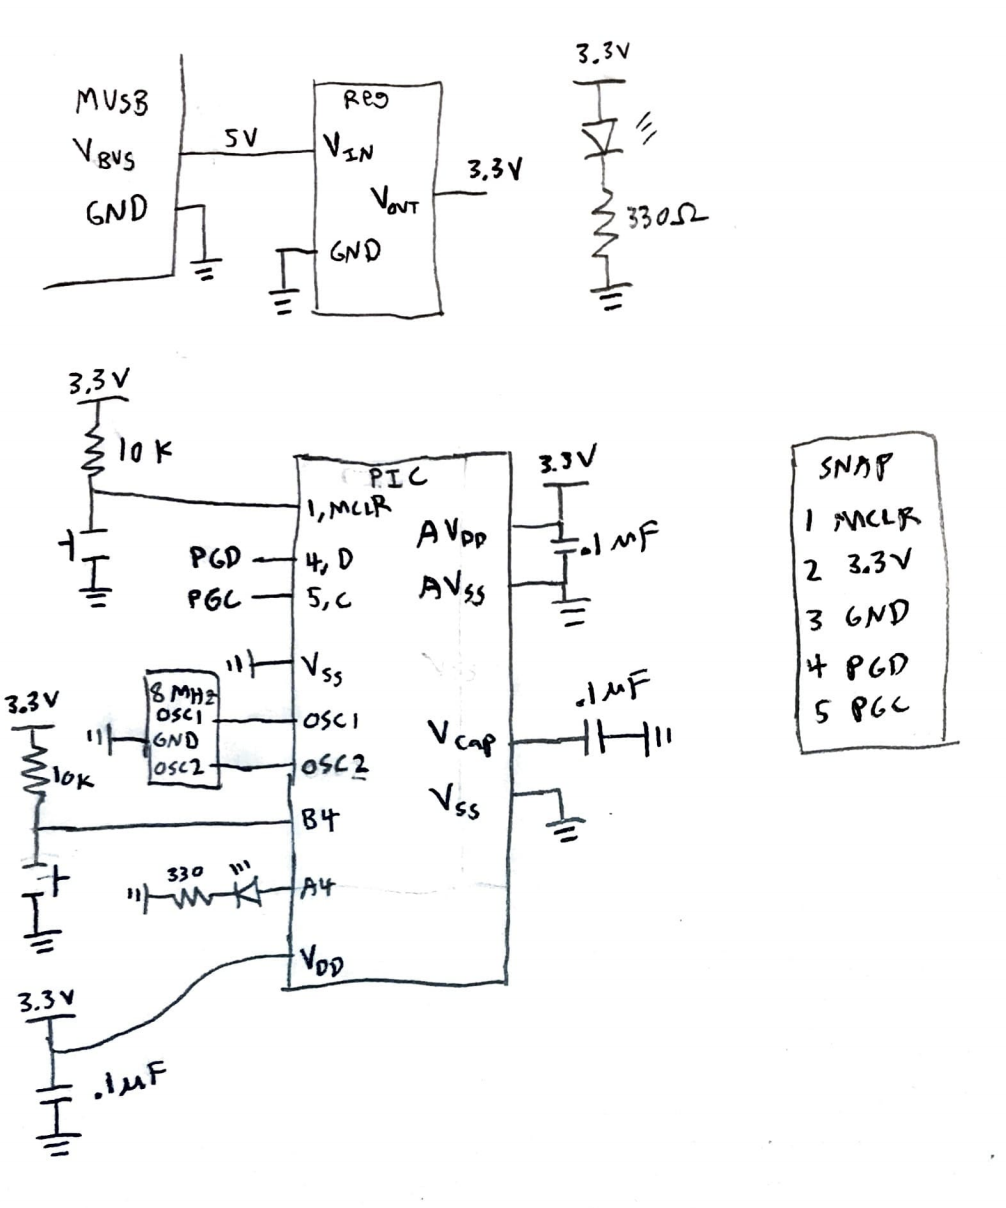 MUSB
VBUS
GND
5V
Reg
VIN
VOUT
GND
3.3V
3.3V
330Ω
3.3V
10 K
PIC
1, MCLR
PGD
4, D
PGC
5, C
VSS
8 MHz
OSC1
GND
OSC2
OSC1
OSC2
3.3V
10K
B4
330
A4
VDD
3.3V
.1μF
AVDD
AVSS
3.3V
.1μF
VCap
.1μF
VSS
SNAP
1 MCLR
2 3.3V
3 GND
4 PGD
5 PGC